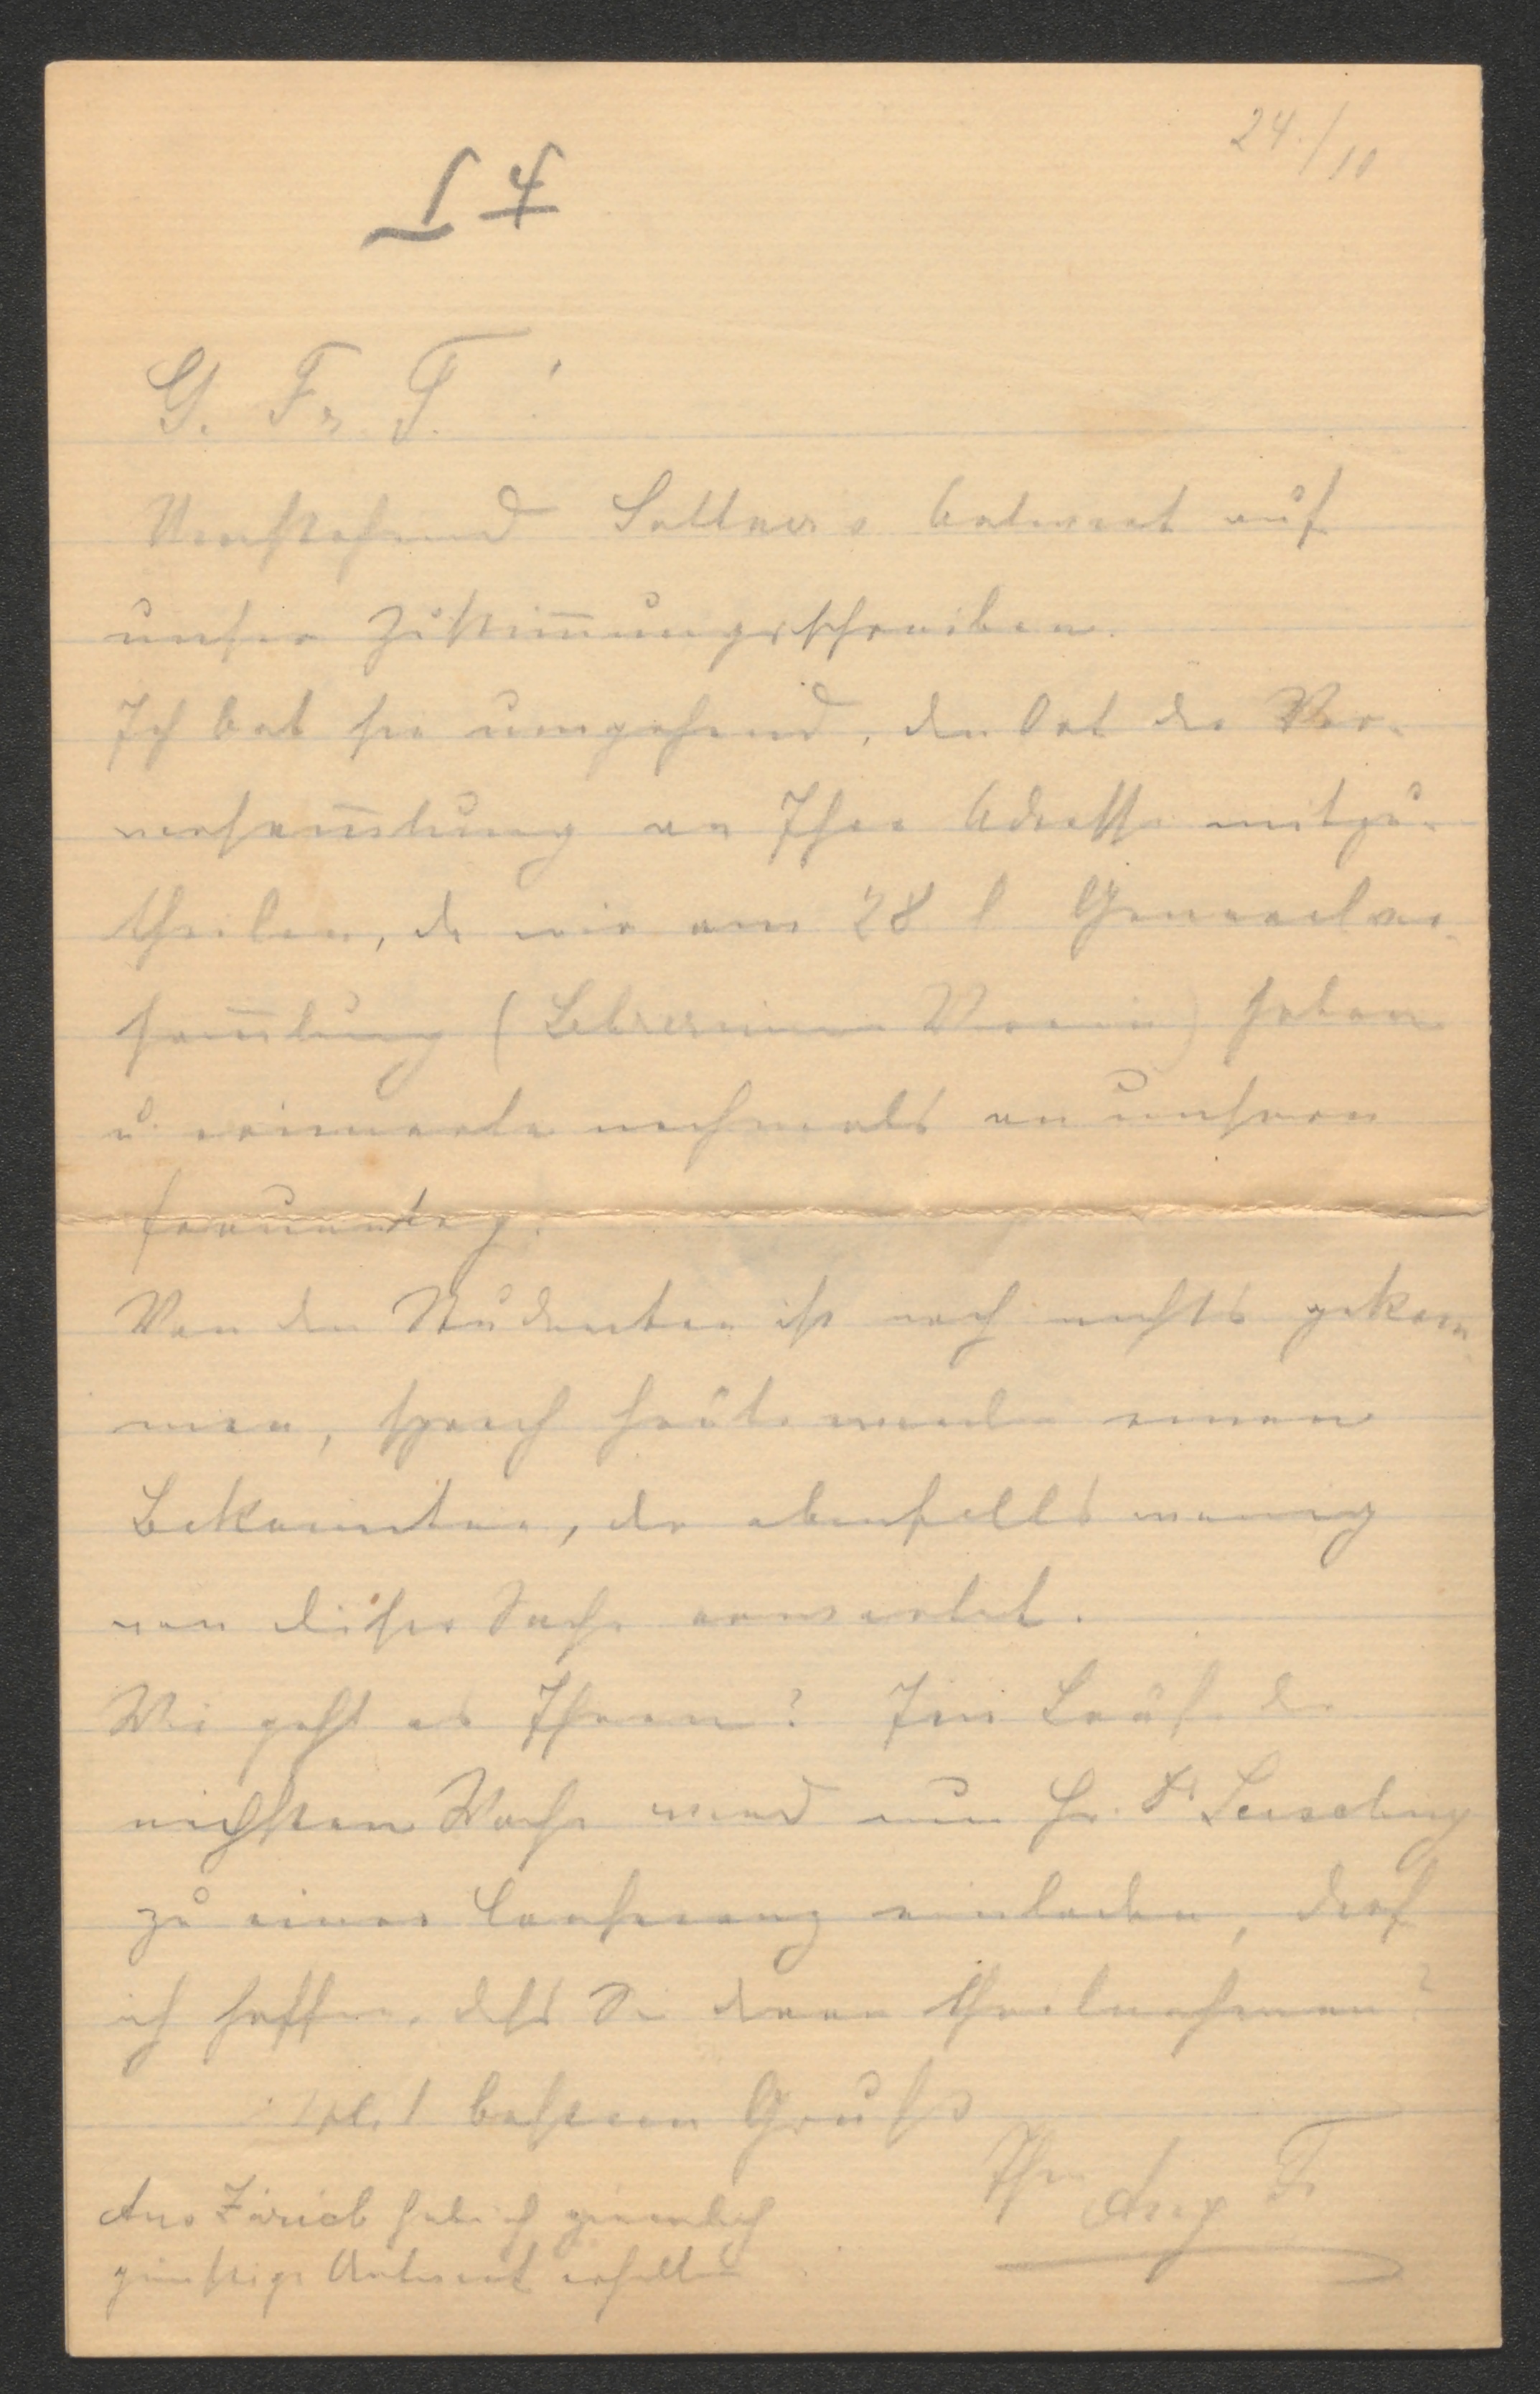 24./10
I 4
G. Fr. F.!
Umstehend Suttners Antwort auf
unser Zustim̅ungsschreiben.
Ich bat sie umgehend, den Ort der Vor-
versam̅lung an Ihre Adresse mitzu-
theilen, da wir am 28 l. Generalver-
sam̅lung (Lehrerinnen Verein) haben
u. erinnerte nochmals an unsern
Frauentag.
Von den Studenten ist noch nichts gekom-
men, sprach heute einen
Bekannten, der ebenfalls wenig
von dieser Sache erwartet.
Wie geht es Ihnen? Im Laufe der
nächsten Woche wird nun Hr. Dr Leisching
zu einer Conferenz einladen, darf
ich hoffen, dass Sie daran theilnehmen?
Mit bestem Gruß
Ihre
Aug F.
Aus Zürich hab ich ziemlich
günstige Antwort erhalten